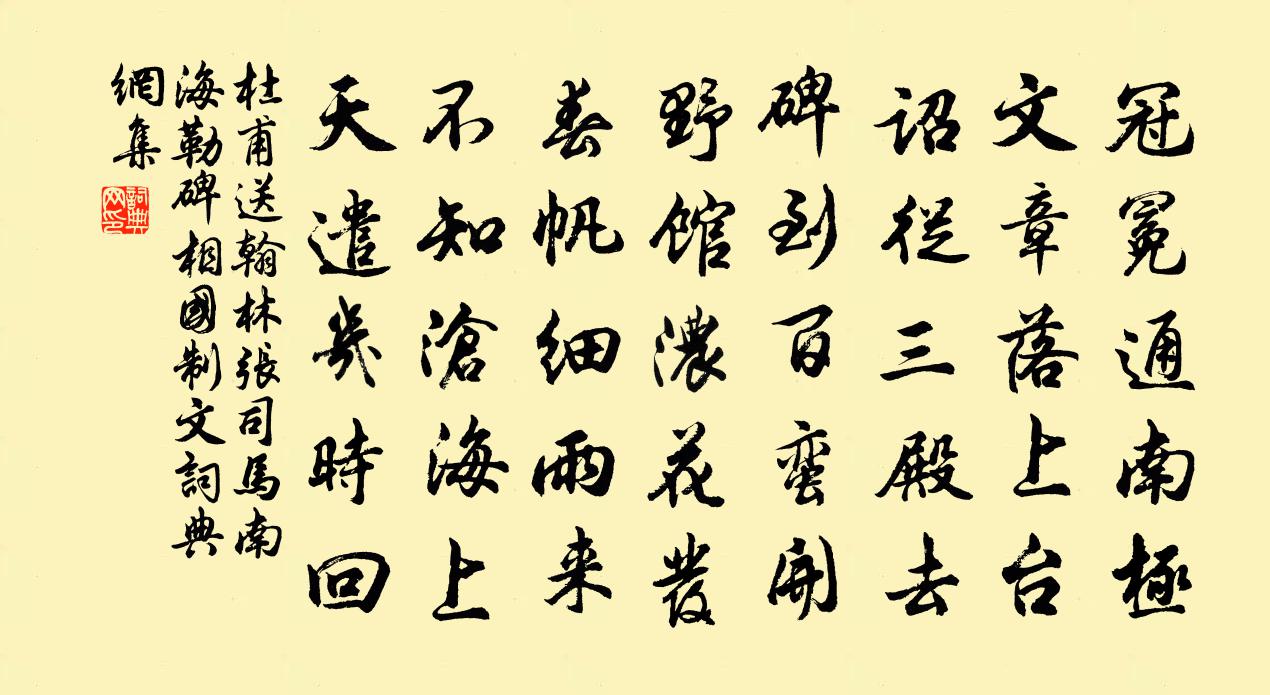 冠冕通南極
文章落上台
詔從三殿去
碑到百蠻開
野館濃花發
春帆細雨來
不知滄海上
天遣幾時回
杜甫送翰林張司馬南
海勒碑相國制文詞典
網集
詞典
网印